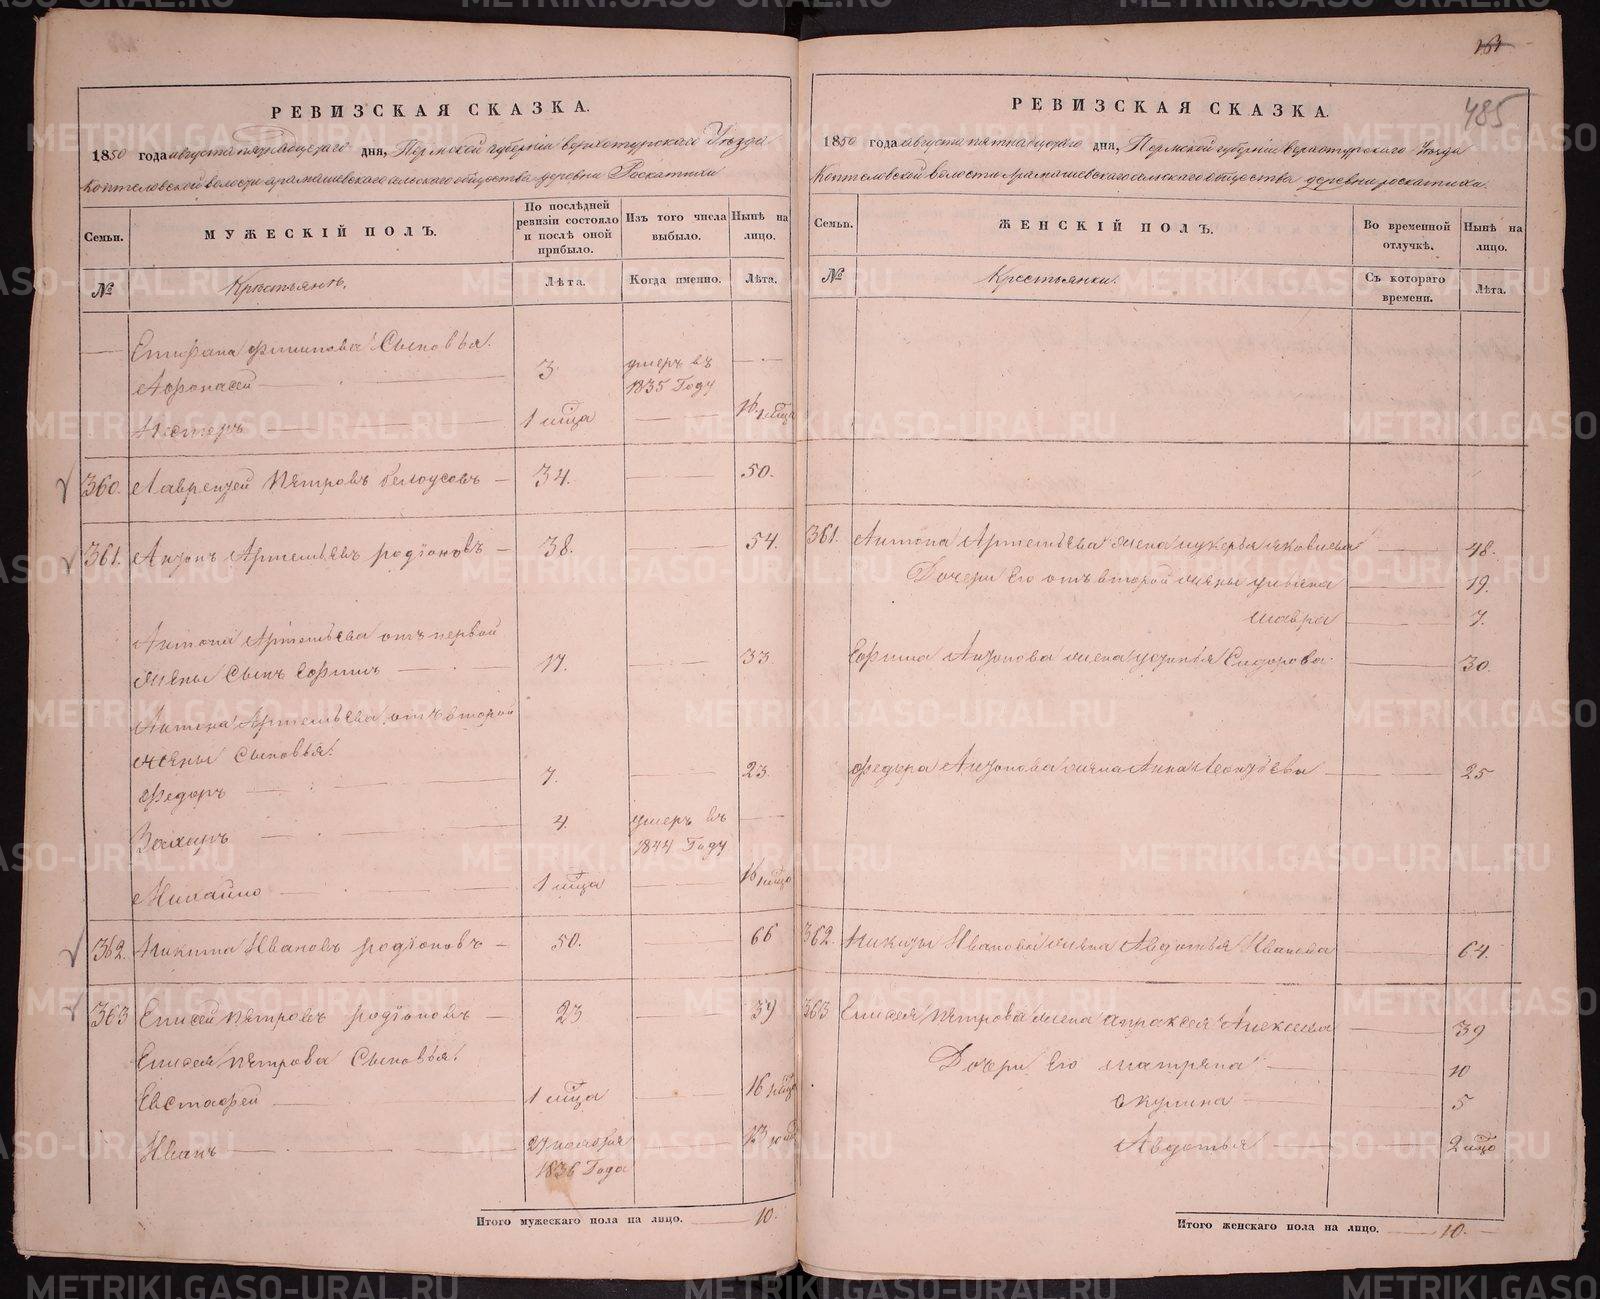 РЕВИЗСКАЯ СКАЗКА.
1850 года августа пятнадцатаго дня, Пермской губерніи верхотурскаго Уѣзда
Коптеловской волости арамашевскаго сельскаго общества деревни Роскатихи
Семьи.
МУЖЕСКІЙ ПОЛЪ.
По послѣдней ревизіи состояло и послѣ оной прибыло.
Изъ того числа выбыло.
Нынѣ на лицо.
№
Крестьянъ.
Лѣта.
Когда именно.
Лѣта.
Епифана филипова Сыновья:
Афонасей 3 умеръ въ 1835 Году
Нестеръ 1 мѣца 16
360. Лаврентей Пѣтровъ белоусовъ 34. 50.
361. Антонъ Артемьевъ родіоновъ 38. 54.
Антона Артемьева отъ первой
жены Сынъ Ефимъ 17. 33
Антона Артемьева отъ второй
жены Сыновья:
Федоръ 7. 23
Захаръ 4. умеръ въ 1844 Году
Михайло 1 мѣца 16
362. Никита Ивановъ родіоновъ 50. 66
363 Елисей Пѣтровъ родіоновъ 23 39
Елисея Пѣтрова Сыновья:
Евстафей 1 мѣца 16
Иванъ 27 ноября 1836 Года 13
Итого мужескаго пола на лицо. 10.
161
485
РЕВИЗСКАЯ СКАЗКА.
1850 года августа пятнадцатаго дня, Пермской губерніи верхотурскаго Уѣзда
Коптеловской волости Арамашевскаго сельскаго общества деревни роскатихи.
Семьи.
ЖЕНСКІЙ ПОЛЪ.
Во временной отлучкѣ.
Нынѣ на лицо.
№
Крестьянки.
Съ котораго времени.
Лѣта.
361. Антона Артемьева жена лукерья яковлева 48.
Дочери Его отъ второй жены ульяна 19.
мавра 7.
Ефима Антонова жена устинья Сидорова 30.
федора Антонова жена Анна 25
362. Никиты Иванова жена Авдотья Иванова 64.
363 Елисея Пѣтрова жена апраксея Алексеева 39
Дочери Его матрена 10
окулина 5
Авдотья 2
Итого женскаго пола на лицо. 10.
METRIKI.GASO-URAL.RU